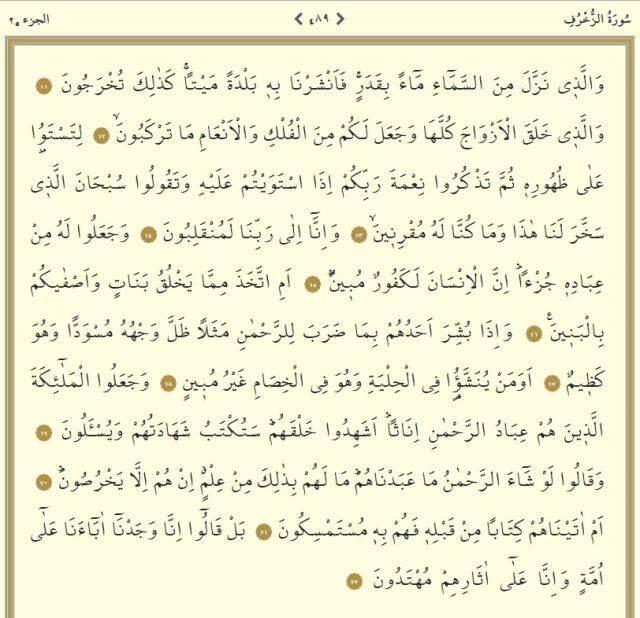 سُورَةُ الزُّخْرُفِ ❮ ٤٨٩ ❯ الجزء ٢٥
وَالَّذ۪ي نَزَّلَ مِنَ السَّمَٓاءِ مَٓاءً بِقَدَرٍۚ فَاَنْشَرْنَا بِه۪ بَلْدَةً مَيْتاًۚ كَذٰلِكَ تُخْرَجُونَ ١١
وَالَّذ۪ي خَلَقَ الْاَزْوَاجَ كُلَّهَا وَجَعَلَ لَكُمْ مِنَ الْفُلْكِ وَالْاَنْعَامِ مَا تَرْكَبُونَۙ ١٢ لِتَسْتَوُ۫ا
عَلٰى ظُهُورِه۪ ثُمَّ تَذْكُرُوا نِعْمَةَ رَبِّكُمْ اِذَا اسْتَوَيْتُمْ عَلَيْهِ وَتَقُولُوا سُبْحَانَ الَّذ۪ي
سَخَّرَ لَنَا هٰذَا وَمَا كُنَّا لَهُ مُقْرِن۪ينَۙ ١٣ وَاِنَّٓا اِلٰى رَبِّنَا لَمُنْقَلِبُونَ ١٤ وَجَعَلُوا لَهُ مِنْ
عِبَادِه۪ جُزْءاًۜ اِنَّ الْاِنْسَانَ لَكَفُورٌ مُب۪ينٌۜ ١٥ اَمِ اتَّخَذَ مِمَّا يَخْلُقُ بَنَاتٍ وَاَصْفٰيكُمْ
بِالْبَن۪ينَۜ ١٦ وَاِذَا بُشِّرَ اَحَدُهُمْ بِمَا ضَرَبَ لِلرَّحْمٰنِ مَثَلاً ظَلَّ وَجْهُهُ مُسْوَداًّ وَهُوَ
كَظ۪يمٌ ١٧ اَوَمَنْ يُنَشَّؤُ۬ا فِي الْحِلْيَةِ وَهُوَ فِي الْخِصَامِ غَيْرُ مُب۪ينٍ ١٨ وَجَعَلُوا الْمَلٰٓئِكَةَ
الَّذ۪ينَ هُمْ عِبَادُ الرَّحْمٰنِ اِنَاثاًۜ اَشَهِدُوا خَلْقَهُمْۜ سَتُكْتَبُ شَهَادَتُهُمْ وَيُسْـَٔلُونَ ١٩
وَقَالُوا لَوْ شَٓاءَ الرَّحْمٰنُ مَا عَبَدْنَاهُمْۜ مَا لَهُمْ بِذٰلِكَ مِنْ عِلْمٍۗ اِنْ هُمْ اِلَّا يَخْرُصُونَۜ ٢٠
اَمْ اٰتَيْنَاهُمْ كِتَاباً مِنْ قَبْلِه۪ فَهُمْ بِه۪ مُسْتَمْسِكُونَ ٢١ بَلْ قَالُٓوا اِنَّا وَجَدْنَٓا اٰبَٓاءَنَا عَلٰٓى
اُمَّةٍ وَاِنَّا عَلٰٓى اٰثَارِهِمْ مُهْتَدُونَ ٢٢